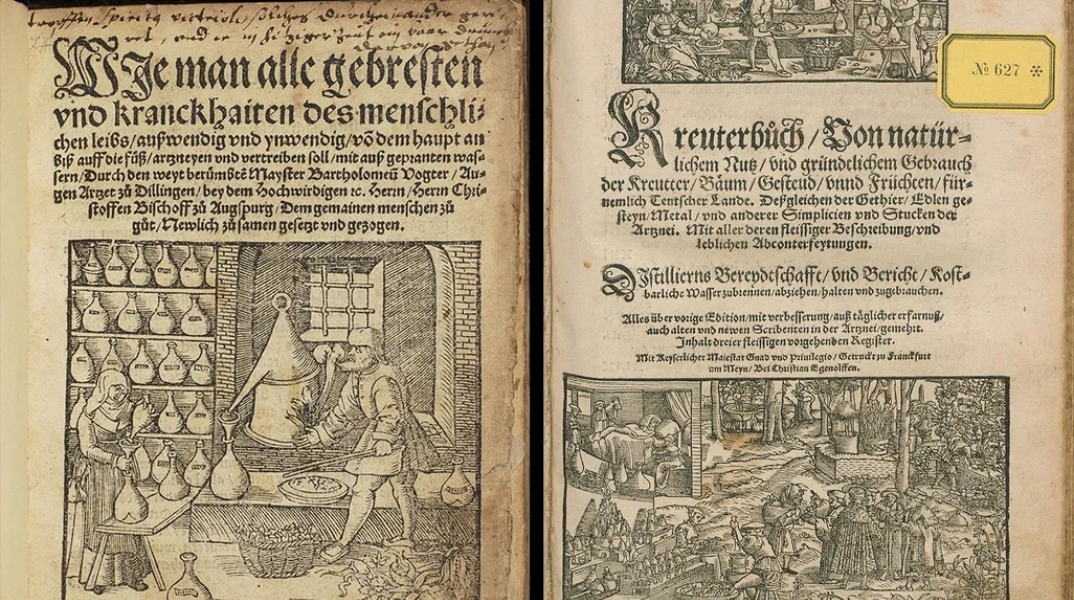 WJe man alle gebresten
vnd kranckhaiten des menschli⸗
chen leibs/außwendig vnd ynwendig/võ dem haupt an
biß auff die füß/artzneyen vnd vertreiben soll/mit auß gepranten was⸗
sern/Durch den weyt berümbtẽ Mayster Bartholomeũ Vogter/Au⸗
gen Artzet zů Dillingen/bey dem Hochwirdigen ꝛc. Herrn/Herrn Chri⸗
stoffen Bischoff zů Augspurg/Dem gemainen menschen zů
gůt/Newlich zůsamen gesetzt vnd gezogen.
№ 627 ✻
Kreuterbůch/Von natür⸗
lichem Nutz/vnd gründtlichem Gebrauch
der Kreutter/Bäum/Gesteud/vnnd Früchten/für⸗
nemlich Teutscher Lande. Deßgleichen der Gethier/Edlen ge⸗
steyn/Metal/vnd anderer Simplicien vnd Stucken der
Artznei. Mit aller deren fleissiger Beschreibung/vnd
leblichen Abconterfeytungen.
DIstillierns Bereydtschafft/vnd Bericht/Kost⸗
barliche Wasser zubrennen/abziehen/halten vnd zugebrauchen.
Alles über vorige Edition/mit verbesserung/auß täglicher erfarnuß/
auch alten vnd newen Scribenten in der Artznei/gemehrt.
Inhalt dreier fleissigen vorgehenden Register.
Mit Keyserlicher Maiestat Gnad vnd Priuilegio/Getruckt zu Franckfurt
am Meyn/Bei Christian Egenolffen.